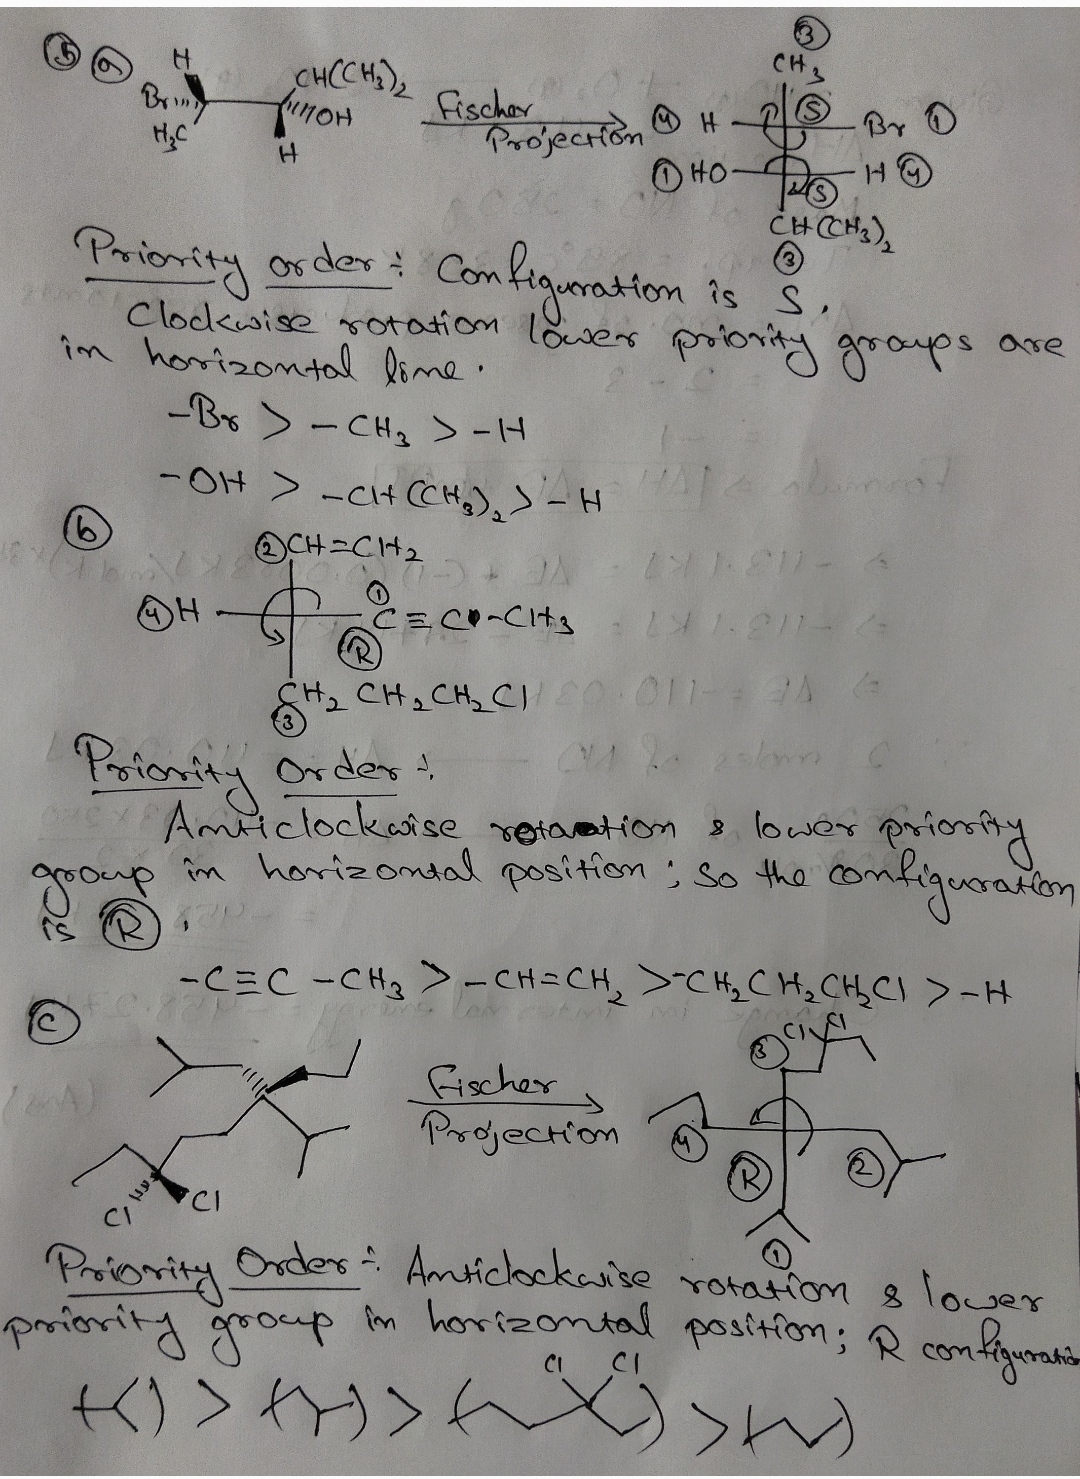 5 a H CH(CH3)2 3
CH3
Br OH Fischer 4 H S Br 1
H3C H Projection 1 HO S H 4
CH(CH3)2
3
Priority order : Configuration is S.
Clockwise rotation lower priority groups are
in horizontal line.
-Br > -CH3 > -H
-OH > -CH(CH3)2 > -H
b
2 CH=CH2
4 H 1 C≡C-CH3
R
CH2CH2CH2Cl
3
Priority Order :
Anticlockwise rotation & lower priority
group in horizontal position; so the configuration
is R.
-C≡C-CH3 > -CH=CH2 > -CH2CH2CH2Cl > -H
c
Cl Cl
3
Fischer
Projection
4 R 2
Cl Cl
1
Priority Order : Anticlockwise rotation & lower
priority group in horizontal position; R configuration
Cl Cl
> > >